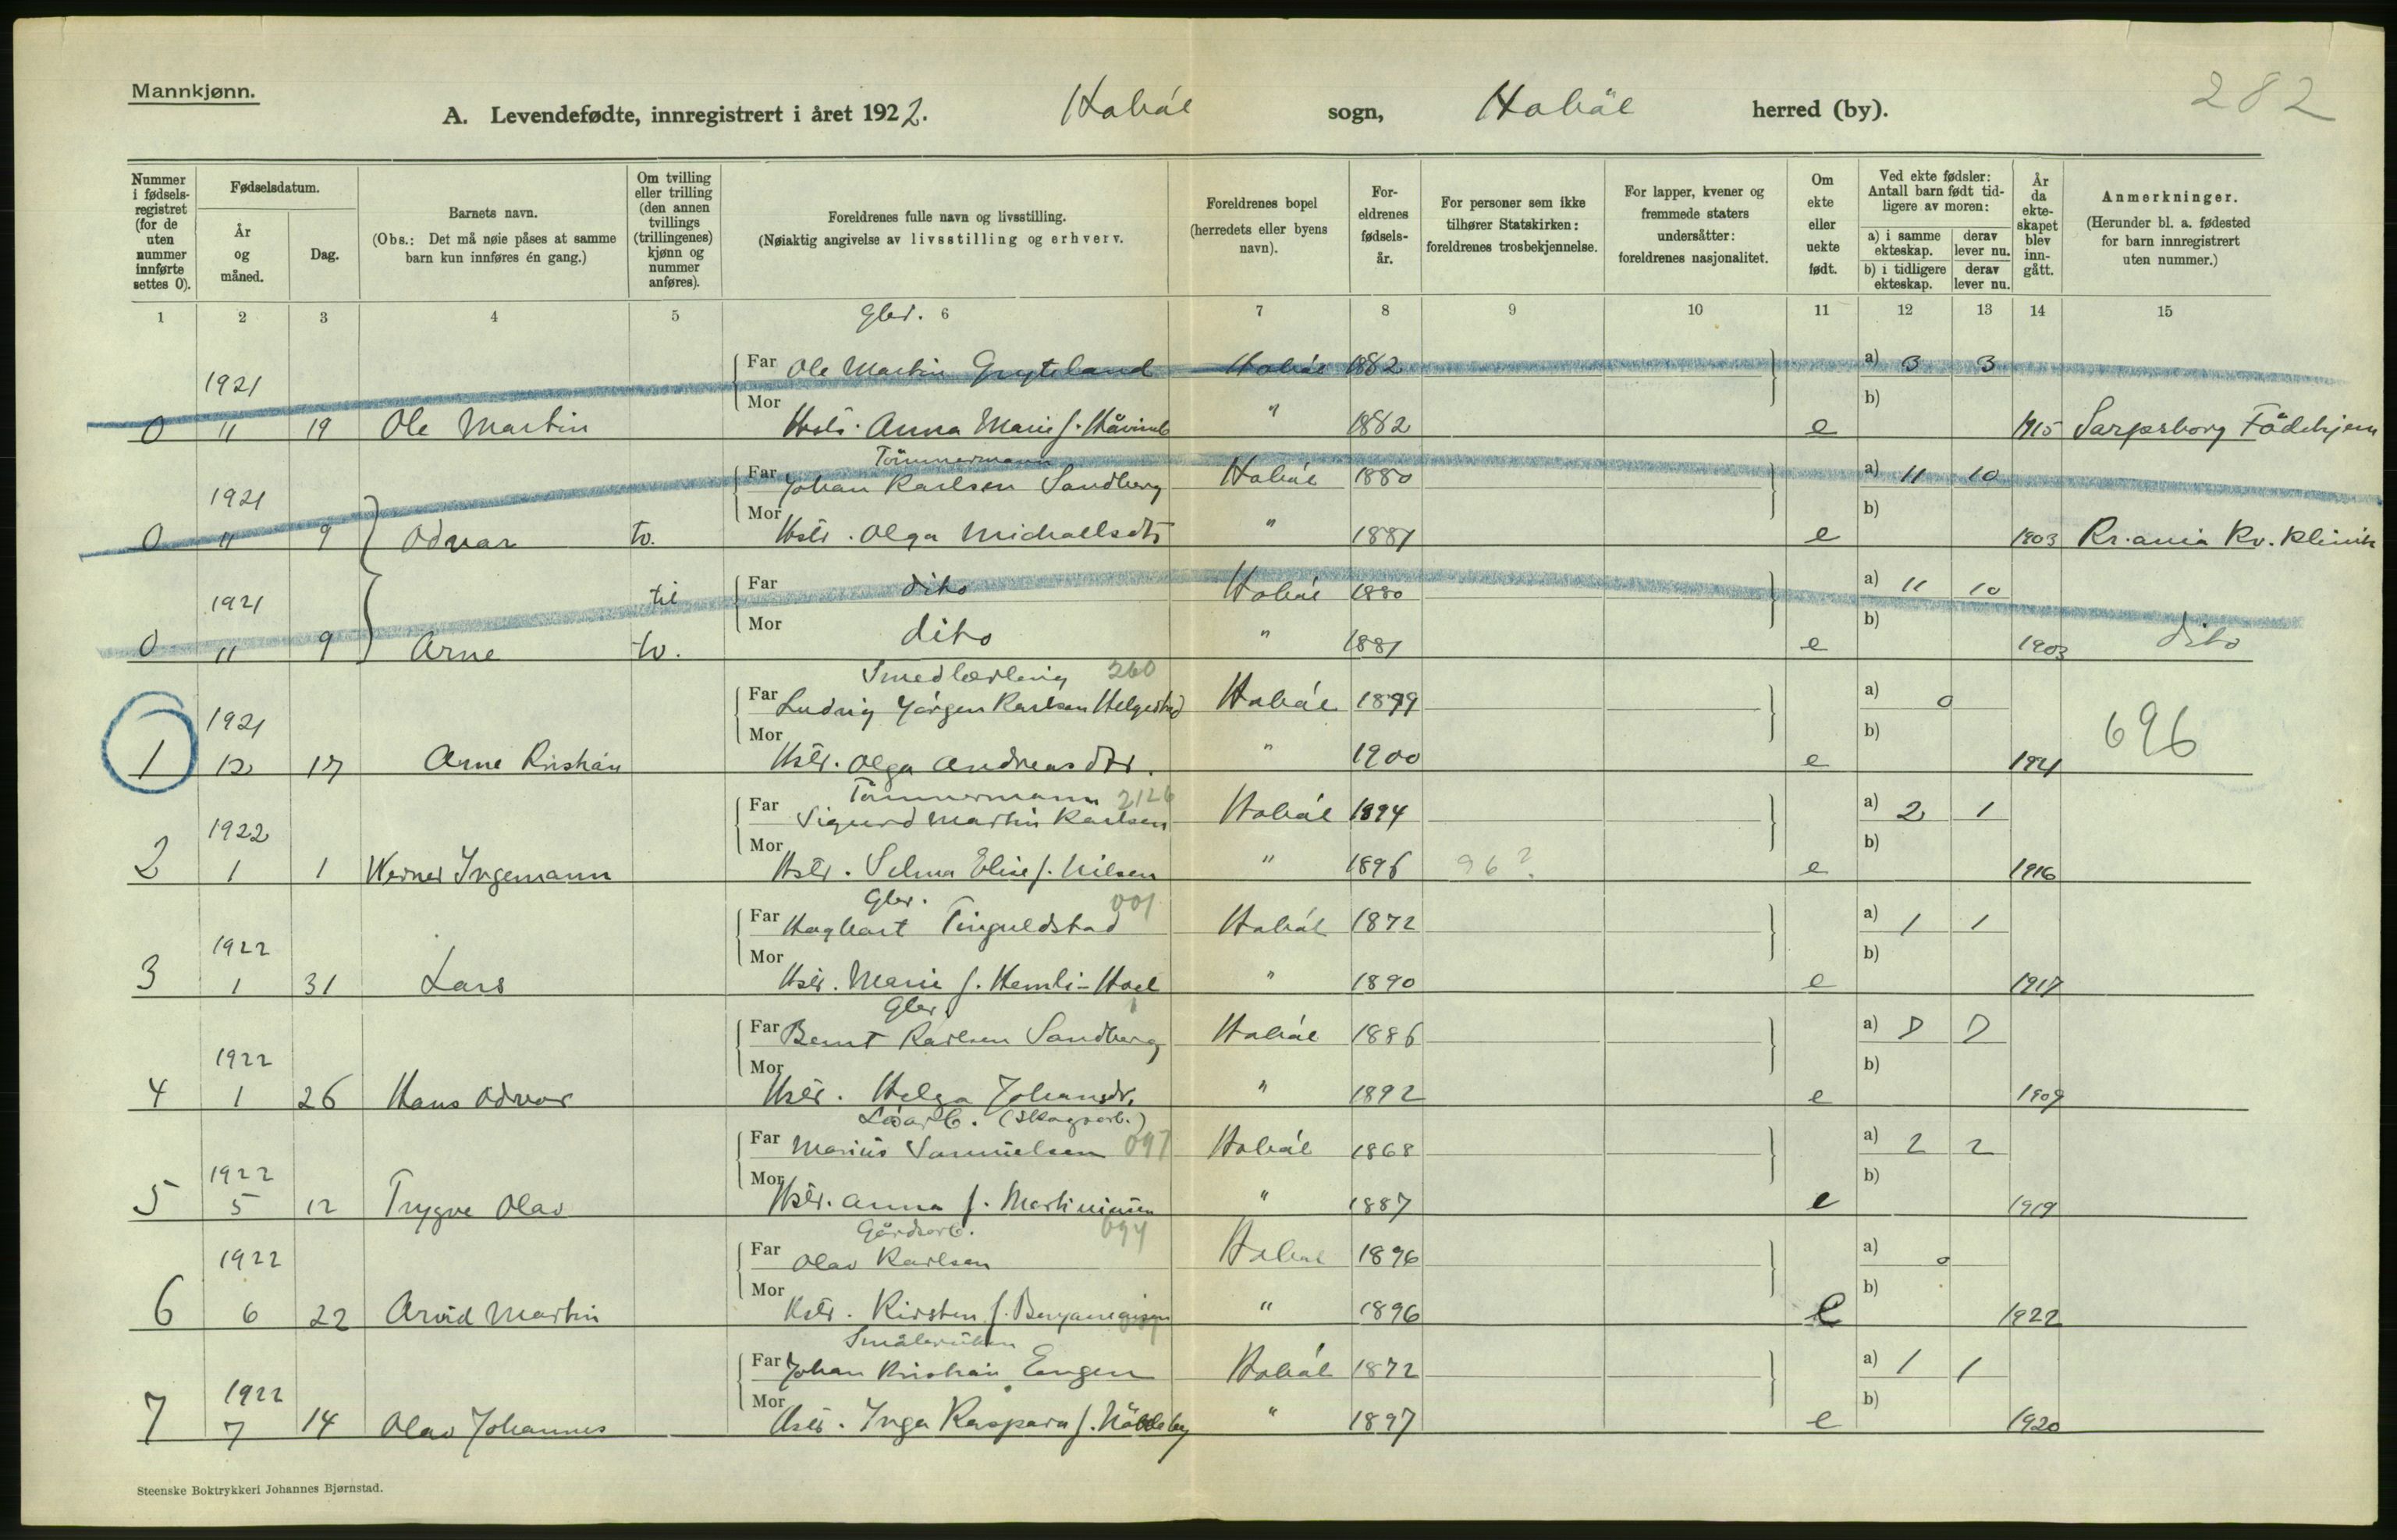 Mannkjønn.
282
A. Levendefødte, innregistrert i året 1922. Hobøl sogn, Hobøl herred (by).
Nummer i fødsels-registret (for de uten nummer innførte settes 0).
Fødselsdatum.
År og måned.
Dag.
Barnets navn.
(Obs.: Det må nøie påses at samme barn kun innføres én gang.)
Om tvilling eller trilling (den annen tvillings (trillingenes) kjønn og nummer anføres).
Foreldrenes fulle navn og livsstilling.
(Nøiaktig angivelse av livsstilling og erhverv.
Foreldrenes bopel (herredets eller byens navn).
For-eldrenes fødsels-år.
For personer som ikke tilhører Statskirken: foreldrenes trosbekjennelse.
For lapper, kvener og fremmede staters undersåtter: foreldrenes nasjonalitet.
Om ekte eller uekte født.
Ved ekte fødsler: Antall barn født tid-ligere av moren:
a) i samme ekteskap.
derav lever nu.
b) i tidligere ekteskap.
derav lever nu.
År da ekte-skapet blev inn-gått.
Anmerkninger.
(Herunder bl. a. fødested for barn innregistrert uten nummer.)
1 2 3 4 5 6 7 8 9 10 11 12 13 14 15
Gbr.
1921 Far Ole Martin Gryteland Hobøl 1882 a) 3 3
0 11 19 Ole Martin Mor Hstr. Anna Marie f. " 1882 e b) 1915 Sarpsborg Fødehjem
Tømmermann
1921 Far Johan Karlsen Sandberg Hobøl 1880 a) 11 10
0 11 9 Odvar tv. Mor Hstr. Olga Michaelsdtr " 1881 e b) 1903 Kr.ania Kv. klinik
1921 til Far dito Hobøl 1880 a) 11 10
0 11 9 Arne tv. Mor dito " 1881 e b) 1903 dito
Smedlærling 260
1921 Far Ludvig Jørgen Karlsen Helgestad Hobøl 1899 a) 0 696
1 12 17 Arne Kristian Mor Hstr. Olga Andreasdtr. " 1900 e b) 1921
Tømmermann 2126
1922 Far Sigurd Martin Karlsen Hobøl 1894 a) 2 1
2 1 1 Werner Ingemann Mor Hstr. Selma Elise f. Nilsen " 1896 96? e b) 1916
Gbr. 001
1922 Far Hagbart Tinguldstad Hobøl 1872 a) 1 1
3 1 31 Lars Mor Hstr. Marie f. Hemli-Hoel " 1890 e b) 1917
Gbr.
1922 Far Bernt Karlsen Sandberg Hobøl 1886 a)
4 1 26 Hans Odvar Mor Hstr. Helga Johansdr. " 1892 e b) 1909
Løsarb. (skogsarb.)
1922 Far Marius Samuelsen 097 Hobøl 1868 a) 2 2
5 5 12 Trygve Olav Mor Hstr. Anna f. Martiniusen " 1887 e b) 1919
Gårdsarb. 094
1922 Far Olav Karlsen Hobøl 1896 a) 0
6 6 22 Arvid Martin Mor Hstr. Kirsten f. " 1896 e b) 1922
Småbruker
1922 Far Johan Kristian Engen Hobøl 1872 a) 1 1
7 7 14 Olav Johannes Mor Hstr. Inga Kaspara f. " 1897 e b) 1920
Steenske Boktrykkeri Johannes Bjørnstad.